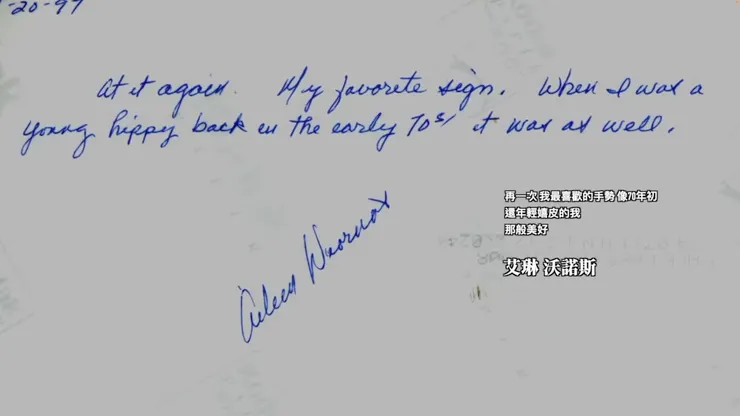 -20-97
At it again. My favorite sign. When I was a
young hippy back in the early 70s' it was as well.
Aileen Wuornos
再一次 我最喜歡的手勢 像70年初
這年輕嬉皮的我
那般美好
艾琳 沃諾斯